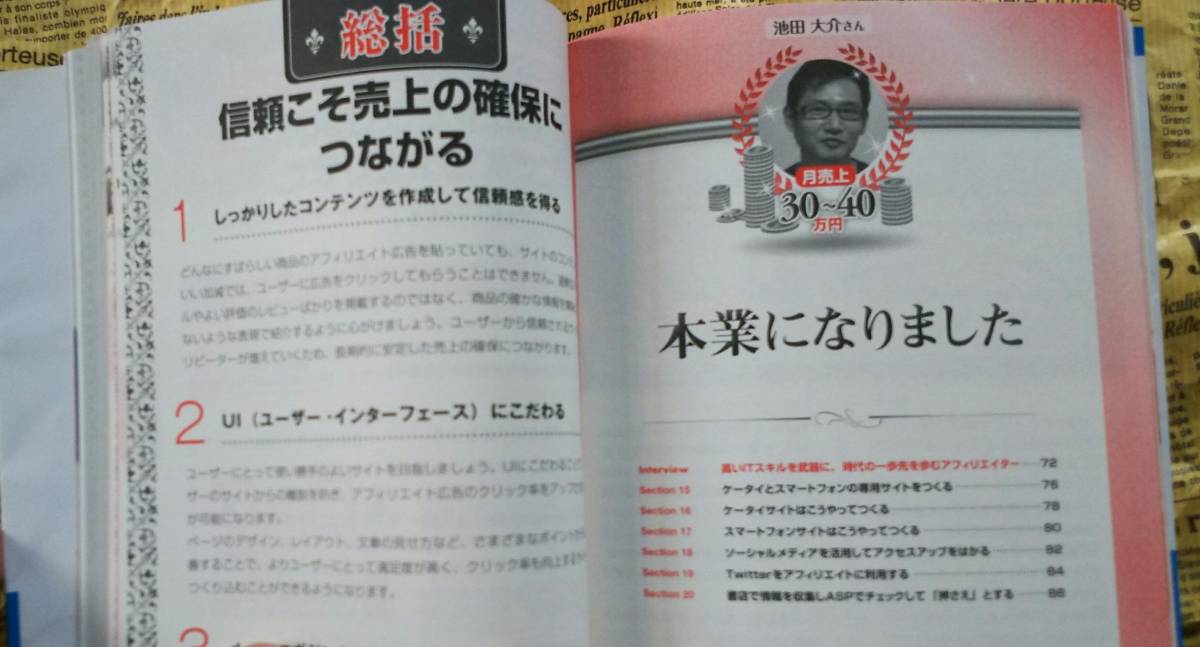 総括
信頼こそ売上の確保に
つながる
1 しっかりしたコンテンツを作成して信頼感を得る
どんなにすばらしい商品のアフィリエイト広告を貼っていても、サイトのコンテ
いい加減では、ユーザーに広告をクリックしてもらうことはできません。
ルやよい評価のレビューばかりを掲載するのではなく、商品の確かな情報を
ないような表現で紹介するように心がけましょう。ユーザーから信頼される
リピーターが増えていくため、長期的に安定した売上の確保につながります。
2 UI(ユーザー・インターフェース)にこだわる
ユーザーにとって使い勝手のよいサイトを目指しましょう。UIにこだわること
ザーのサイトからの離脱を防ぎ、アフィリエイト広告のクリック率をアップ
が可能になります。
ページのデザイン、レイアウト、文章の見せ方など、さまざまなポイント
善することで、よりユーザーにとって満足度が高く、クリック率も向上する
つくり込むことができるようになります。
3
池田 大介さん
月売上
30~40
万円
本業になりました
Interview 高いITスキルを武器に、時代の一歩先を歩むアフィリエイター 72
Section 15 ケータイとスマートフォンの専用サイトをつくる 76
Section 16 ケータイサイトはこうやってつくる 78
Section 17 スマートフォンサイトはこうやってつくる 80
Section 18 ソーシャルメディアを活用してアクセスアップをはかる 82
Section 19 Twitterをアフィリエイトに利用する 84
Section 20 書店で情報を収集しASPでチェックして「押さえ」とする 86